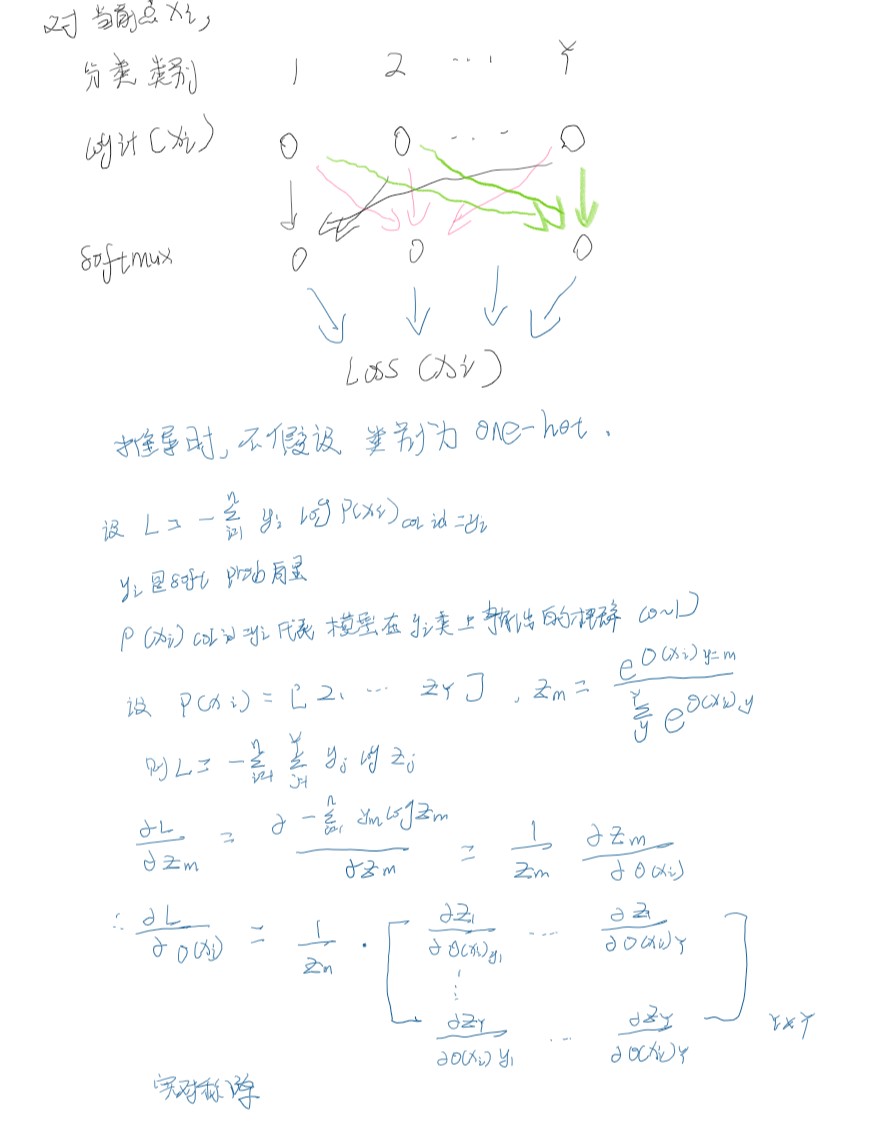 对当前点 xi,
分类类别 1 2 ... Y
logit(xi) O O ... O
softmax O O O
Loss (xi)
推导时, 不假设 类别为 one-hot.
设 L = - Σ_{i=1}^{n} yi log P(xi) col id = yi
yi 是 soft prob 向量
P(xi) col id = yi 代表 模型在 yi 类上 输出的概率 (0~1)
设 P(xi) = [ z, ... zY ], zm = e^{O(xi) y=m} / Σ_{y}^{Y} e^{O(xi), y}
则 L = - Σ_{i=1}^{n} Σ_{j=1}^{Y} yj log zj
∂L/∂zm = ∂ - Σ_{i=1}^{n} ym log zm / ∂zm = 1/zm ∂zm/∂O(xi)
∴ ∂L/∂O(xi) = 1/zm · [ ∂z1/∂O(xi)y1 ... ∂z1/∂O(xi)Y
⋮
∂zY/∂O(xi)y1 ... ∂zY/∂O(xi)Y ] Y×Y
实对称阵